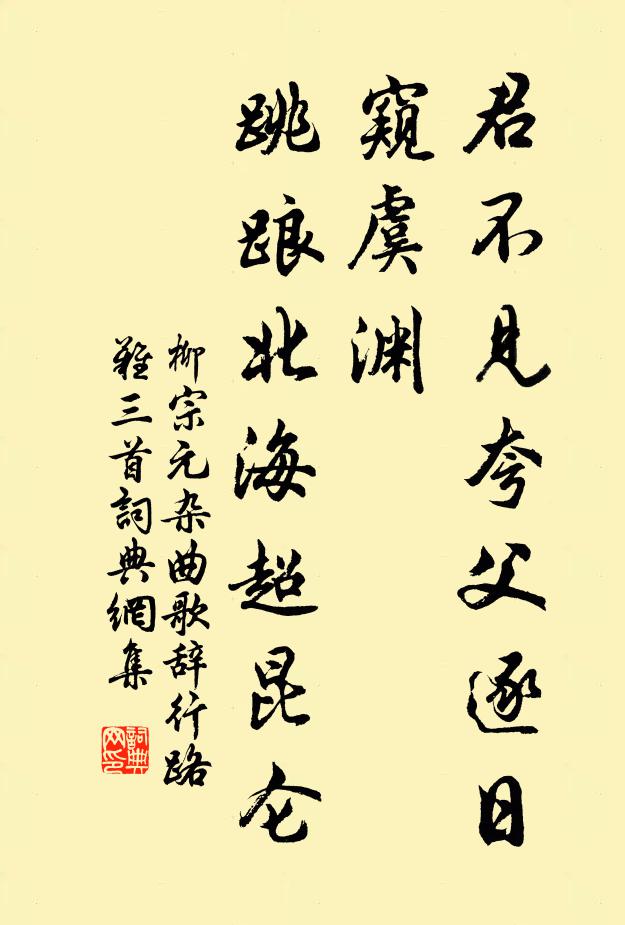 君不见夸父逐日
窥虞渊
跳踉北海超昆仑
柳宗元杂曲歌辞行路
難三首詞典網集
詞典
网印